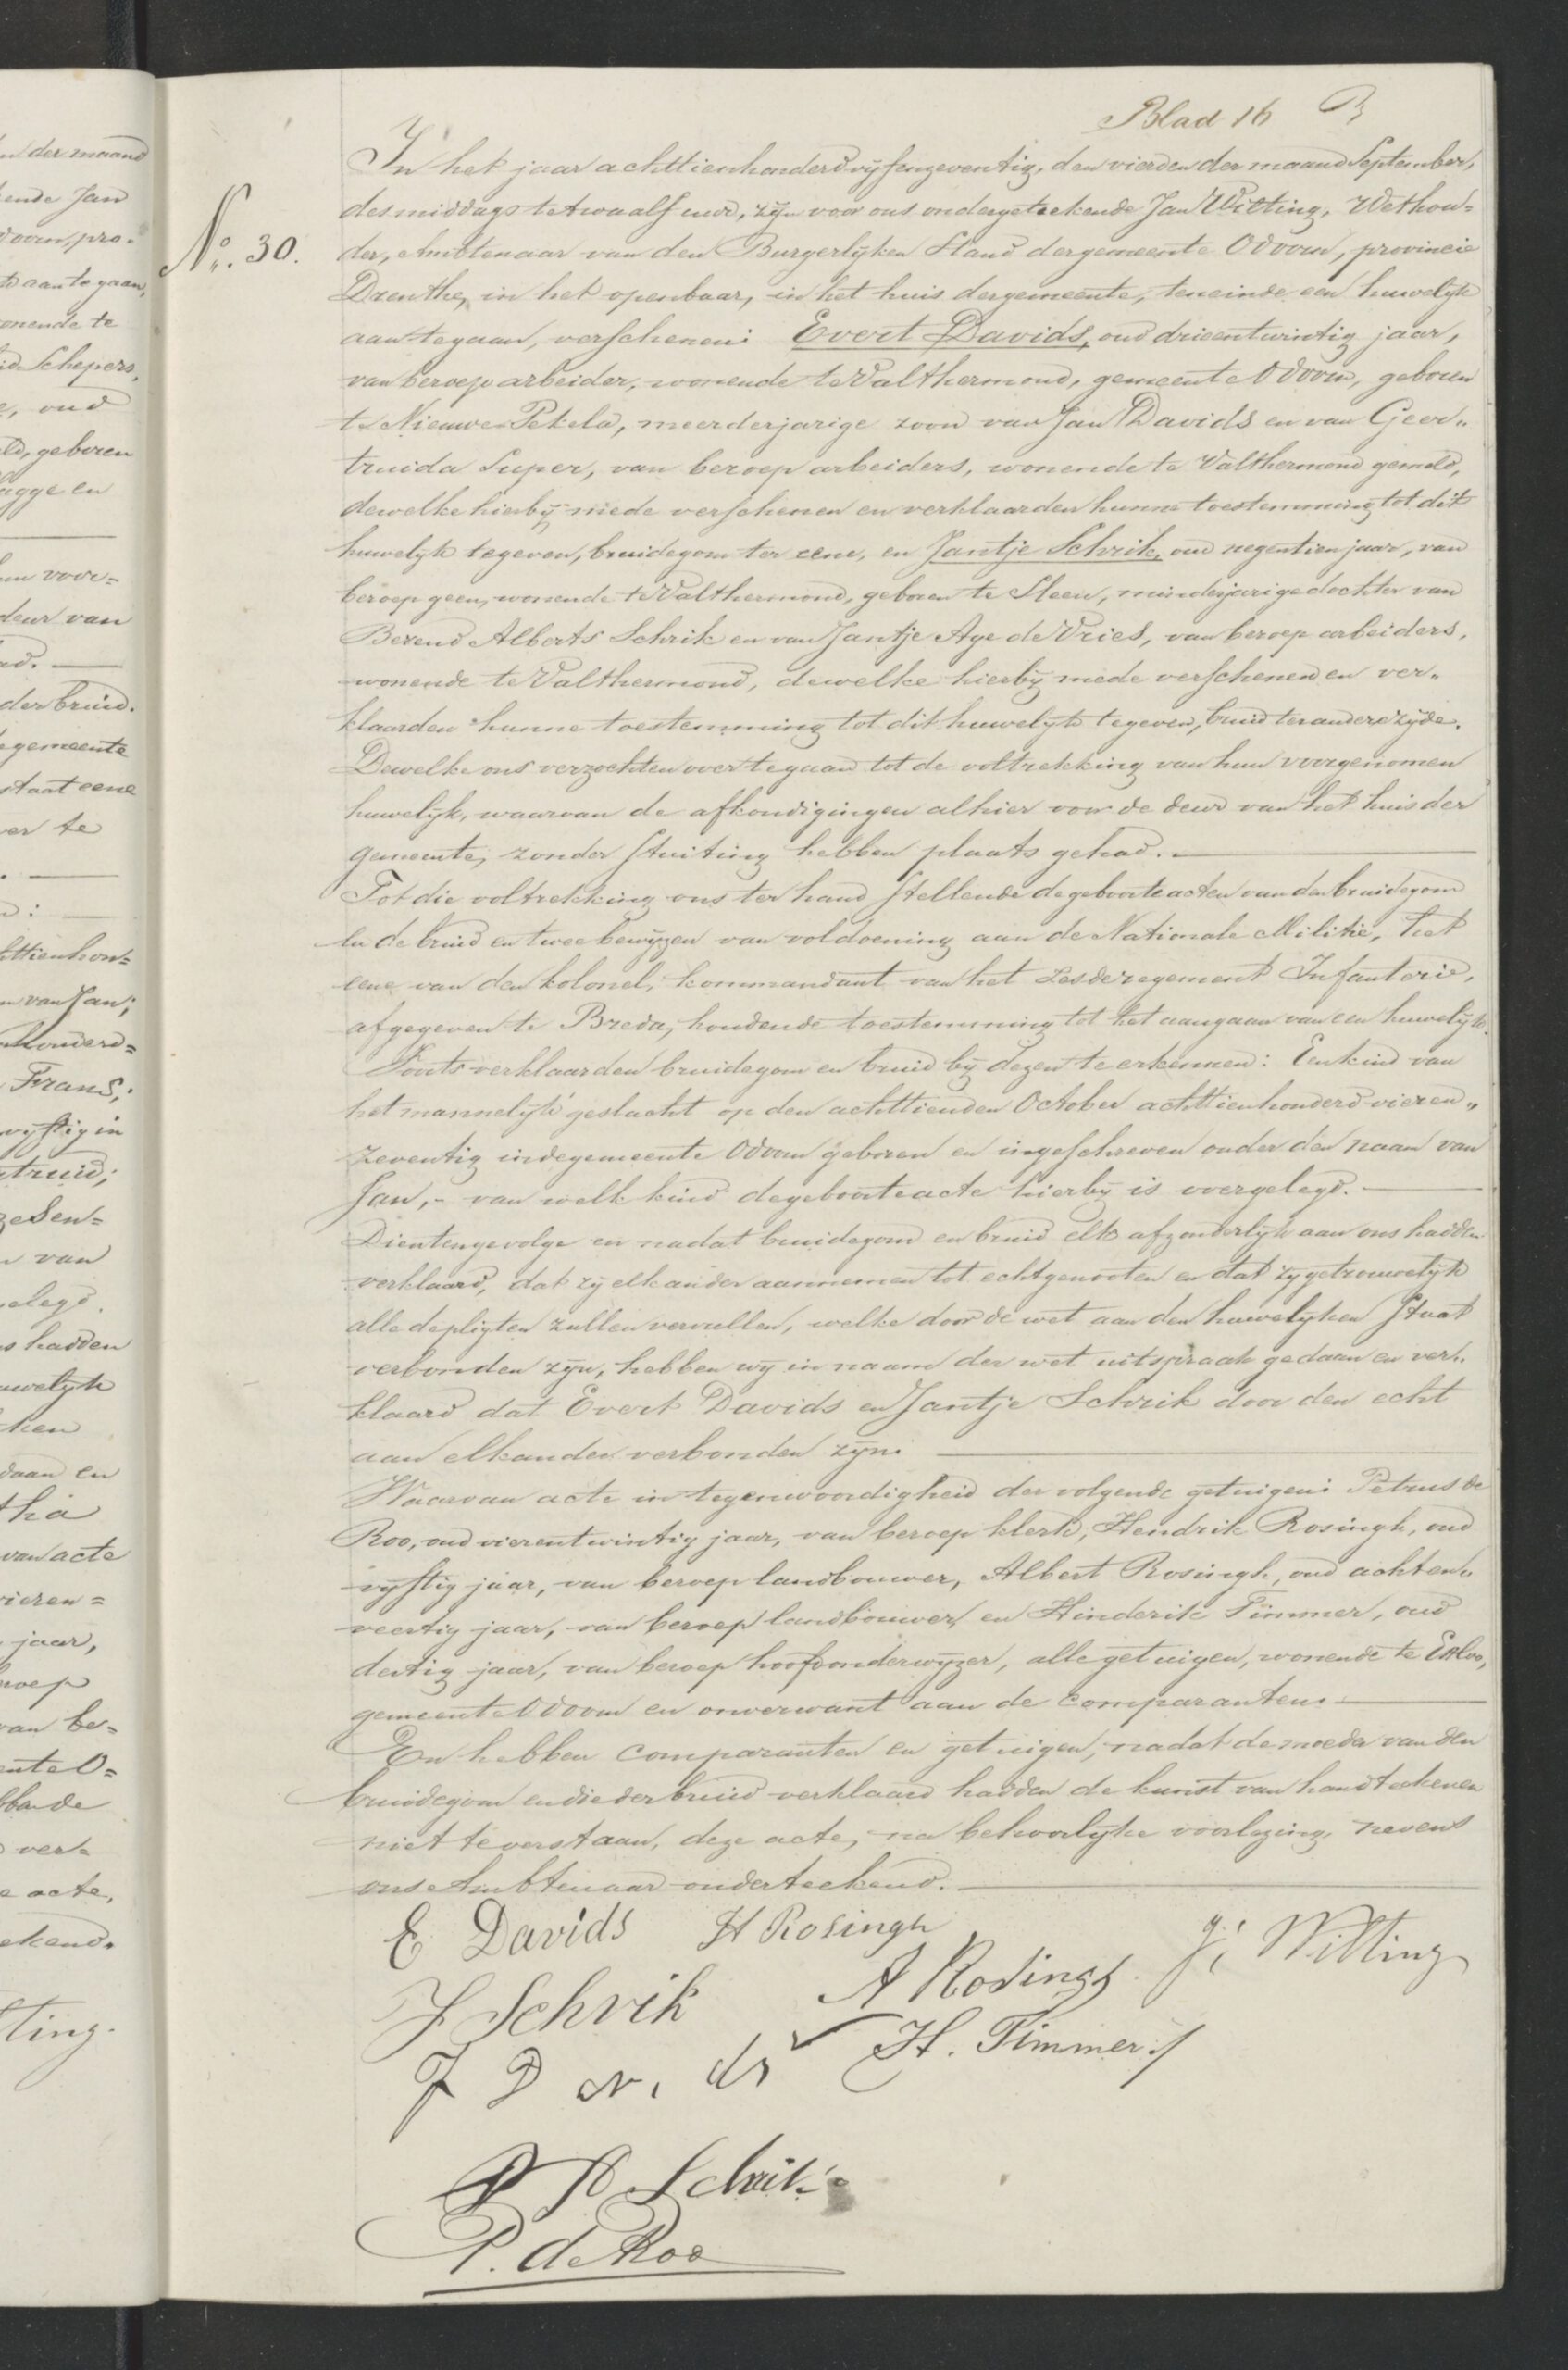 Blad 16 B
In het jaar achttienhonderd vijfenzeventig, den vierden der maand September,
des middags te twaalf uur, zijn voor ons ondergeteekende Jan Witting, Wethou=
No. 30.
der, Ambtenaar van den Burgerlijken Stand der gemeente Odoorn, provincie
Drenthe, in het openbaar, in het huis der gemeente, teneinde een huwelijk
aan te gaan, verschenen: Evert Davids, oud drieentwintig jaar,
van beroep arbeider, wonende te Valthermond, gemeente Odoorn, geboren
te Nieuwe Pekela, meerderjarige zoon van Jan Davids en van Geer„
truida Super, van beroep arbeiders, wonende te Valthermond gemeld,
dewelke hierbij mede verschenen en verklaarden hunne toestemming tot dit
huwelijk te geven, bruidegom ter eene, en Jantje Schrik, oud negentien jaar, van
beroep geen, wonende te Valthermond, geboren te Sleen, minderjarige dochter van
Berend Alberts Schrik en van Jantje Aye de Vries, van beroep arbeiders,
wonende te Valthermond, dewelke hierbij mede verschenen en ver„
klaarden hunne toestemming tot dit huwelijk te geven, bruid ter andere zijde.
Dewelke ons verzochten over te gaan tot de voltrekking van hun voorgenomen
huwelijk, waarvan de afkondigingen alhier voor de deur van het huis der
gemeente, zonder stuiting hebben plaats gehad.
Tot die voltrekking ons ter hand stellende de geboorteacten van den bruidegom
en de bruid en twee bewijzen van voldoening aan de Nationale Militie, het
eene van den kolonel, kommandant van het Zesde regement Infanterie,
afgegeven te Breda, houdende toestemming tot het aangaan van een huwelijk.
Voorts verklaarden bruidegom en bruid bij dezen te erkennen: Een kind van
het mannelijk geslacht op den achttienden October achttienhonderd vieren„
zeventig in de gemeente Odoorn geboren en ingeschreven onder den naam van
Jan,- van welk kind de geboorteacte hierbij is overgelegd.
Dientengevolge en nadat bruidegom en bruid elk afzonderlijk aan ons hadden
verklaard, dat zij elkander aannemen tot echtgenooten en dat zij getrouwelijk
alle de pligten zullen vervullen, welke door de wet aan den huwelijken staat
verbonden zijn, hebben wij in naam der wet uitspraak gedaan en ver„
klaard dat Evert Davids en Jantje Schrik door den echt
aan elkander verbonden zijn.
Waarvan acte in tegenwoordigheid der volgende getuigen: Petrus de
Roo, oud vierentwintig jaar, van beroep klerk, Hendrik Rosingh, oud
vijftig jaar, van beroep landbouwer, Albert Rosingh, oud achten„
veertig jaar, van beroep landbouwer, en Hinderik Timmer, oud
dertig jaar, van beroep hoofdonderwijzer, alle getuigen, wonende te Exloo,
gemeente Odoorn en onverwant aan de comparanten.
En hebben comparanten en getuigen, nadat de moeder van den
bruidegom en die der bruid verklaard hadden de kunst van handteekenen
niet te verstaan, deze acte, na behoorlijke voorlezing, nevens
ons Ambtenaar onderteekend.
E Davids H Rosingh J: Witting
J Schrik A Rosingh
J D v. ds H. Timmer
B A Schrik
P. de Roo